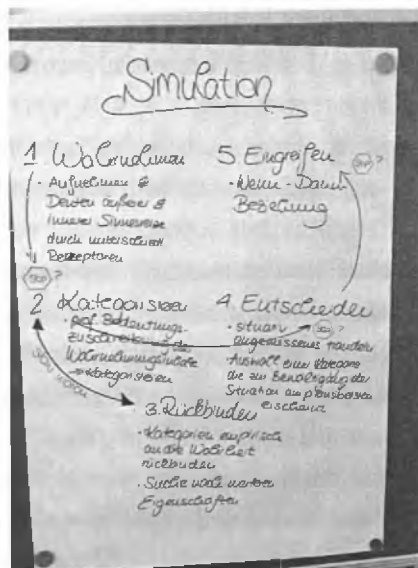 Simulation
1 Wahrnehmen
· Aufnehmen &
Deuten äußerer &
innerer Sinnesreize
durch
Rezeptoren
Stop ?
2 Kategorisieren
· Bedeutungs-
zuschreibung der
Wahrnehmungsinhalte
→ Kategorisieren
3. Rückbinden
· Kategorien empirisch
an die Wahrheit
rückbinden
· Suche nach weiteren
Eigenschaften
4. Entscheiden
· situativ → Stop ?
angemessenes handeln
· Auswahl einer Kategorie
die zur Bewältigung der
Situation am plausibelsten
erscheint
5. Eingreifen Stop ?
· Wenn - Dann
Beziehung